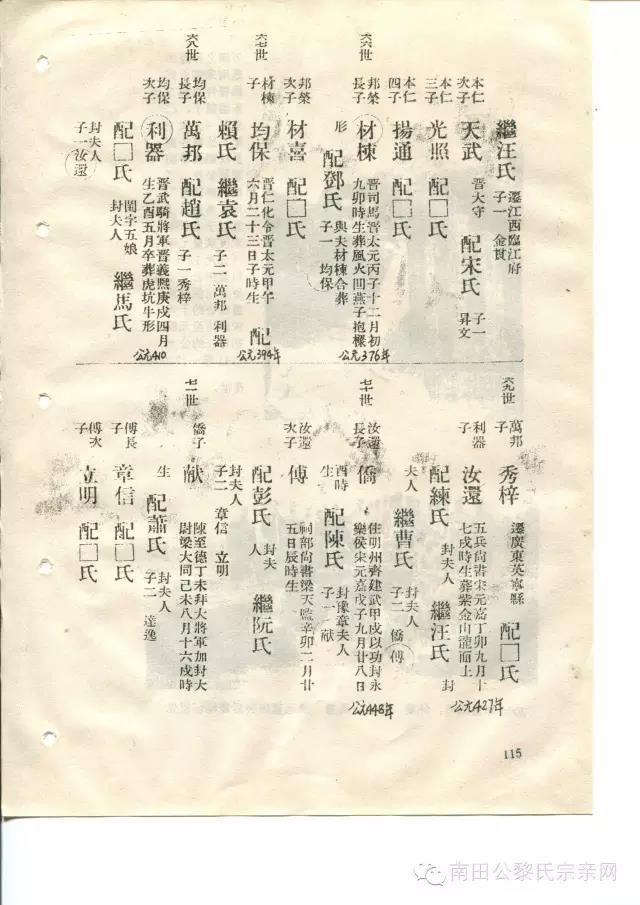 繼汪氏 遷江西臨江府
子一 金貫
本仁次子 天武 晋大守 配宋氏 子一 昇文
本仁三子 光照 配□氏
本仁四子 揚通 配□氏
六六世
邦榮長子 材棟 晋司馬晋太元丙子十二月初
九卯時生葬風火凹燕子抱樑
公元376年
形 配鄧氏 與夫材棟合葬
子一 均保
邦榮次子 材喜 配□氏
六七世
材棟子 均保 晋仁化令晋太元甲午
六月二十三日子時生 配
公元394年
賴氏 繼袁氏 子二 萬邦 利器
六八世
均保長子 萬邦 配趙氏 子一秀梓
均保次子 利器 晋武騎將軍晋義熙庚戌四月
生乙酉五月卒葬虎坑牛形
公元410
配□氏 閨字五娘
封夫人 繼馬氏
封夫人
子一汝還
六九世
萬邦子 秀梓 遷廣東英寧縣 配□氏
利器子 汝還 五兵尚書宋元嘉丁卯九月十
七戌時生葬紫金山龍面上
公元427年
配練氏 封夫人 繼汪氏 封
夫人 繼曹氏 封夫人
子二 僑 傅
七十世
汝還長子 僑 住明州齊建武甲戌以功封永
樂侯宋元嘉戊子九月廿八日
公元448年
酉時生 配陳氏 封豫章夫人
子一 献
汝還次子 傅 祠部尚書梁天監辛卯二月廿
五日辰時生
配彭氏 封夫人 繼阮氏
封夫人
子二 章信 立明
七一世
僑子 献 陳至德丁未拜大將軍加封大
尉梁大同己未八月十六戌時
生 配蕭氏 封夫人
子二 達逸
傅長子 章信 配□氏
傅次子 立明 配□氏
115
南田公黎氏宗亲网